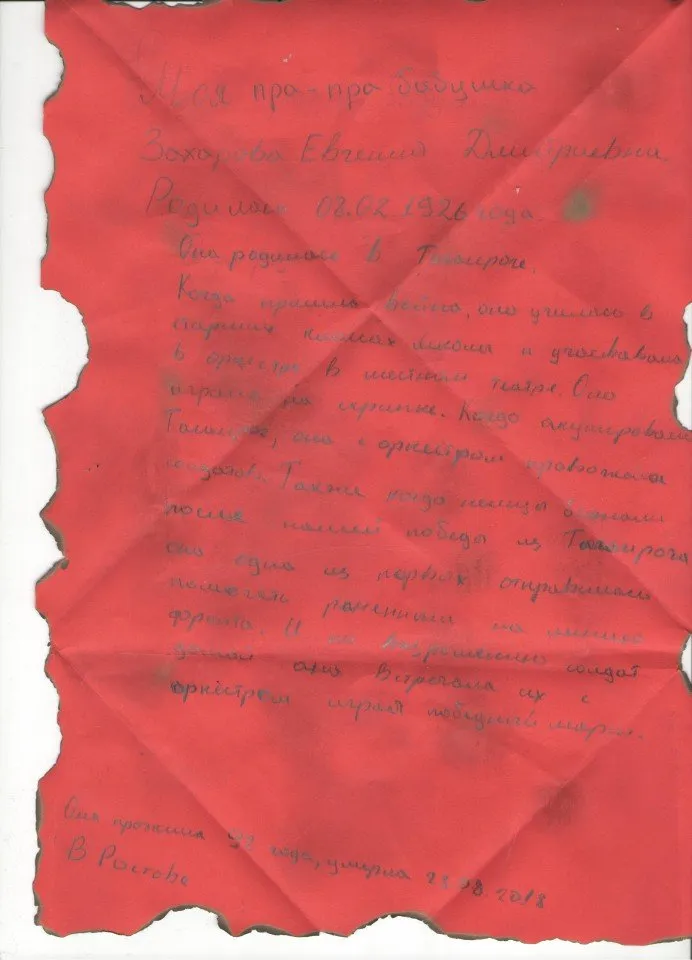 Моя пра-пра бабушка
Захарова Евгения Дмитриевна.
Родилась 02.02.1926 года.
Она родилась в Таганроге.
Когда пришла война, она училась в
старших классах школы и участвовала
в оркестре в местном театре. Она
играла на скрипке. Когда акупировали
Таганрог, она с оркестром провожала
солдатов. Также когда немцы бежали
после нашей победы из Таганрога
она одна из первых отправилась
помогать раненным на линию
фронта. И по возрощению солдат
домой она встречала их с
оркестром играя победный марш.
Она прожила года, умерла 08.2018
В Ростове